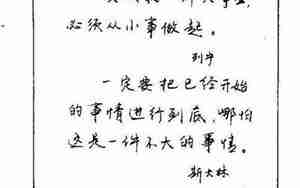 必须从小事做起。
列宁
一定要把已经开始
的事情进行到底，哪怕
这是一件不大的事情。
斯大林